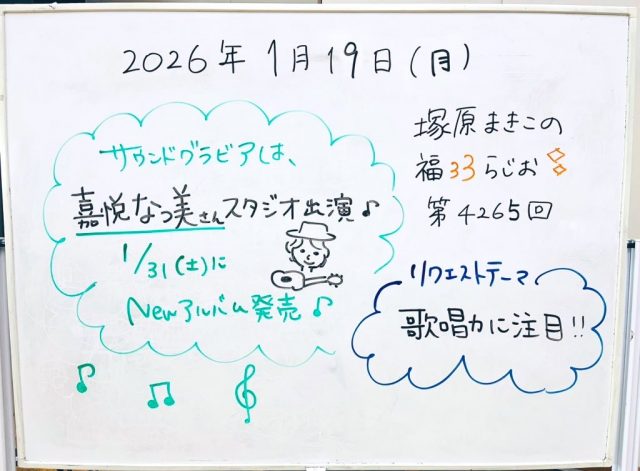 2026年1月19日(月)
サウンドグラビアは、
嘉悦なつ美さんスタジオ出演♪
1/31(土)に
Newアルバム発売♪
塚原まきこの
福33らじお
第4265回
リクエストテーマ
歌唱力に注目!!